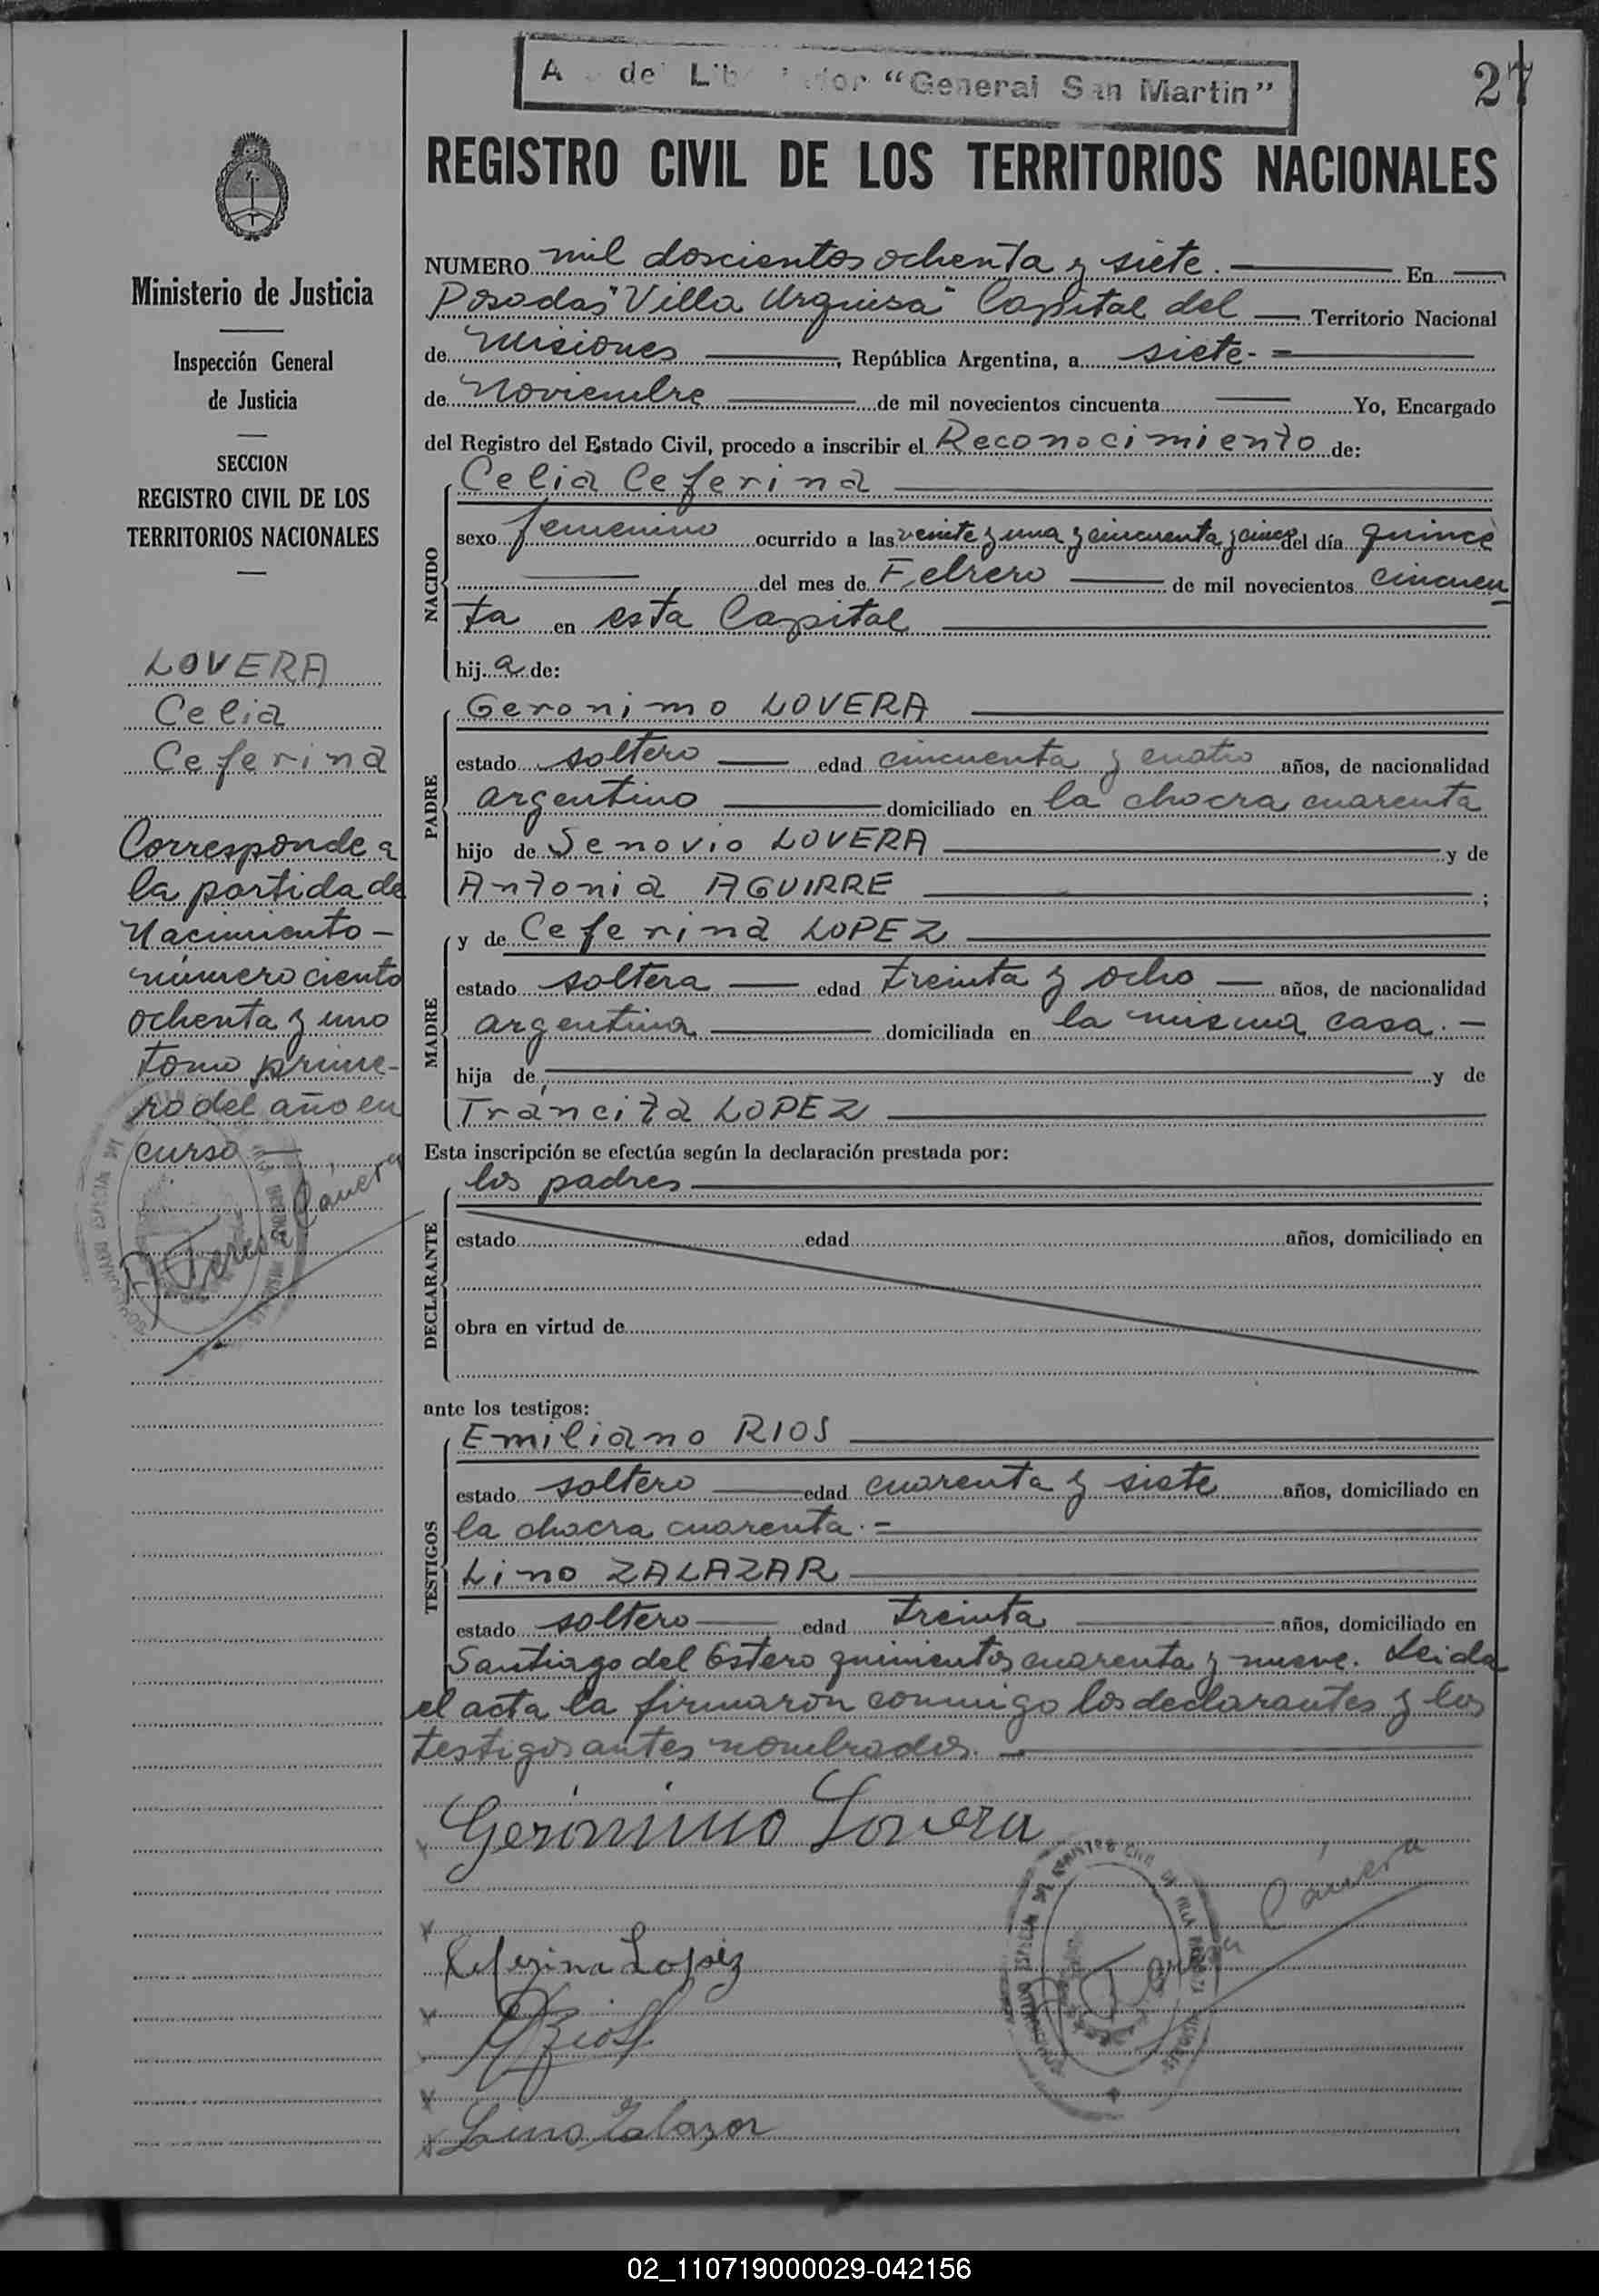 A de Lib dor "General San Martin"
27
REGISTRO CIVIL DE LOS TERRITORIOS NACIONALES
Ministerio de Justicia
Inspección General
de Justicia
SECCION
REGISTRO CIVIL DE LOS
TERRITORIOS NACIONALES
LOVERA
Celia
Ceferina
Corresponde a
la partida de
Nacimiento -
número ciento
ochenta y uno
tomo prime-
ro del año en
curso
NUMERO mil doscientos ochenta y siete. En
Posadas "Villa Urquisa" Capital del Territorio Nacional
de Misiones, República Argentina, a siete.-
de Noviembre de mil novecientos cincuenta Yo, Encargado
del Registro del Estado Civil, procedo a inscribir el Reconocimiento de:
NACIDO
Celia Ceferina
sexo femenino ocurrido a las veinte y una y cincuenta y cinco del día quince
del mes de Febrero de mil novecientos cincuen
ta en esta Capital
hij a de:
PADRE
Geronimo LOVERA
estado soltero edad cincuenta y cuatro años, de nacionalidad
argentino domiciliado en la chacra cuarenta
hijo de Senovio LOVERA y de
Antonia AGUIRRE ;
MADRE
y de Ceferina LOPEZ
estado soltera edad treinta y ocho años, de nacionalidad
argentina domiciliada en la misma casa.-
hija de y de
Tráncita LOPEZ
Esta inscripción se efectúa según la declaración prestada por:
DECLARANTE
los padres
estado edad años, domiciliado en
obra en virtud de
ante los testigos:
TESTIGOS
Emiliano RIOS
estado soltero edad cuarenta y siete años, domiciliado en
la chacra cuarenta.-
Lino ZALAZAR
estado soltero edad treinta años, domiciliado en
Santiago del Estero quinientos cuarenta y nueve. Leida
el acta la firmaron conmigo los declarantes y los
testigos antes nombrados.-
Gerónimo Lovera
Seferina Lopez
Rios
Lino Zalazar
02_110719000029-042156